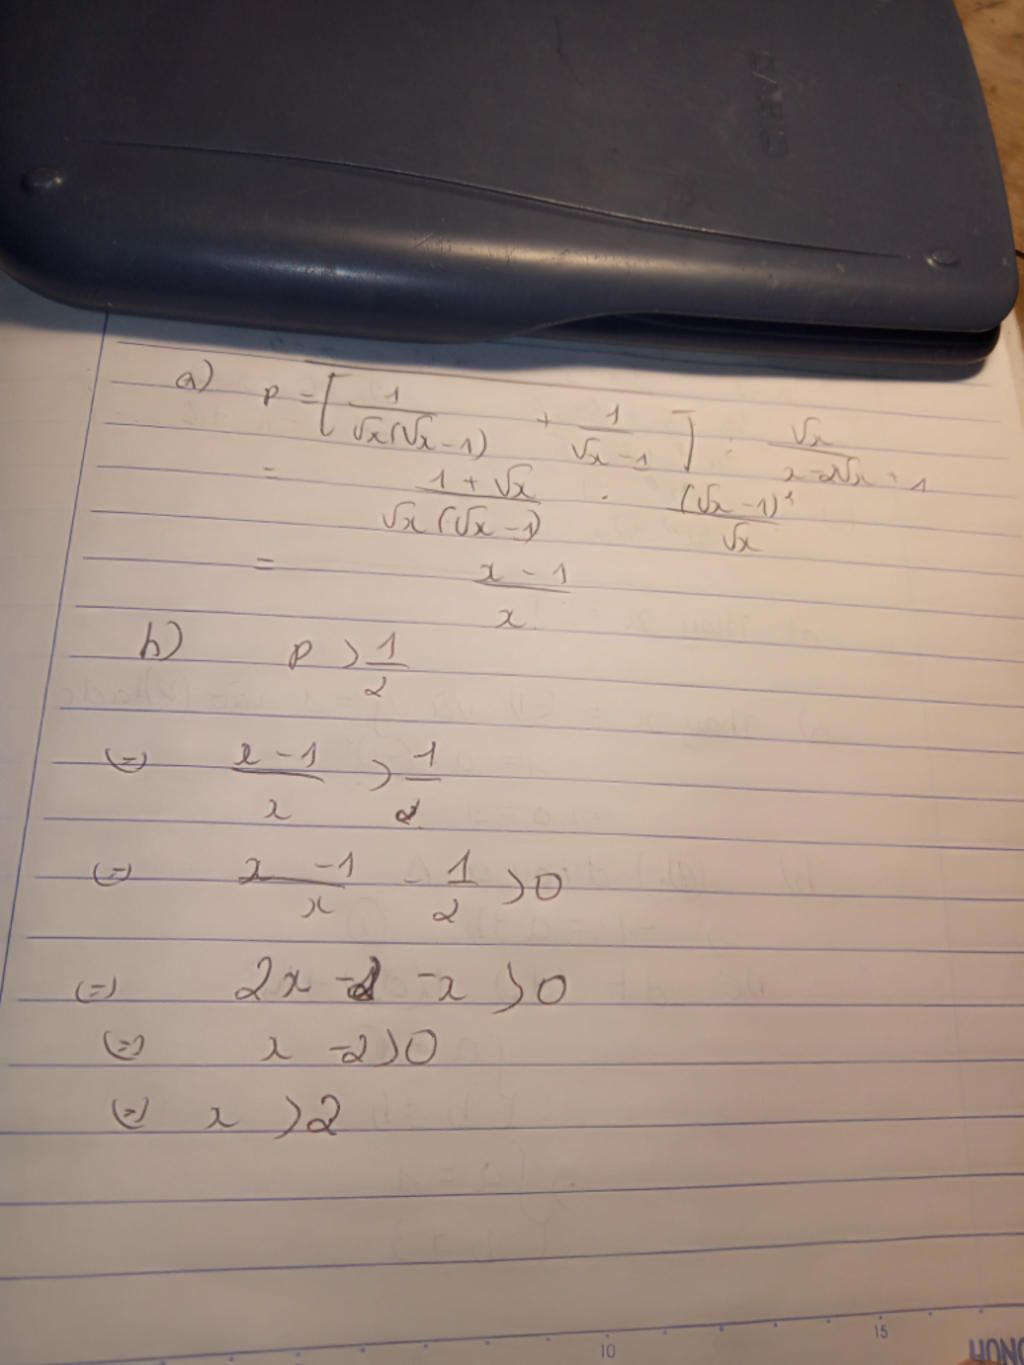 CASIO
a) P = [ 1/(√x(√x - 1)) + 1/(√x - 1) ] : √x/(x - 2√x + 1)
= (1 + √x)/(√x(√x - 1)) . (√x - 1)²/√x
= (x - 1)/x
b) P > 1/2
(=) (x - 1)/x > 1/2
(=) (x - 1)/x - 1/2 > 0
(=) 2x - 2 - x > 0
(=) x - 2 > 0
(=) x > 2
10 15